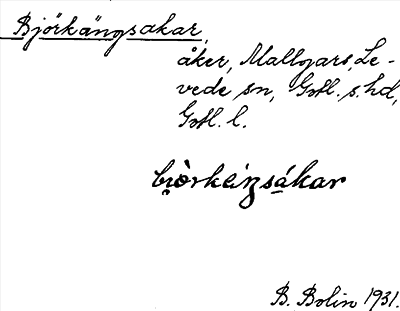 Björkängsakar,
åker, Mallgars, Le-
vede sn, Gotl. s. hd,
Gotl. l.
bi̯òrkeiŋsákar
B. Bolin 1931.